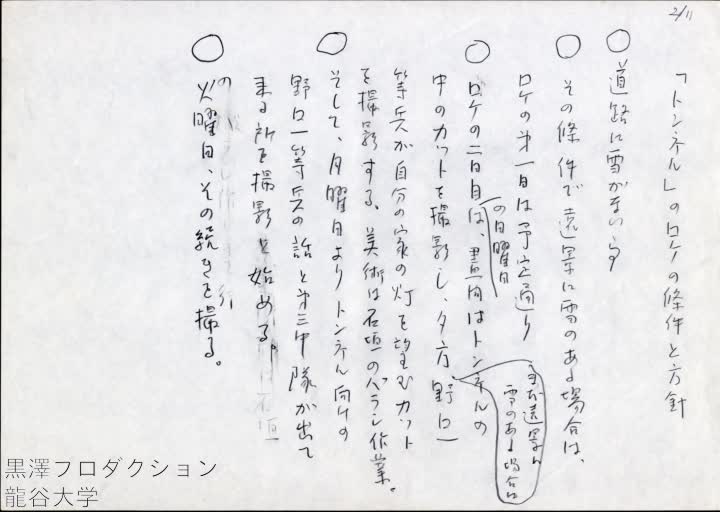 2/11
「トンネル」のロケの條件と方針
○道路に雪がない事
○その條件で遠景に雪のある場合は、
ロケの第一日は予定通り
○ロケの二日目は、晝間はトンネルの
の日曜日
中のカットを撮影し、夕方、野口一
まだ遠景に
雪のある場合は
等兵が自分の家の灯を望むカット
を撮影する。美術は石垣のバラシ作業。
○そして、月曜日よりトンネル向けの
野口一等兵の話と第三中隊が出て
来る所を撮影を始める。
の
○火曜日、その続きを撮る。
黒澤フロダクション
龍谷大学